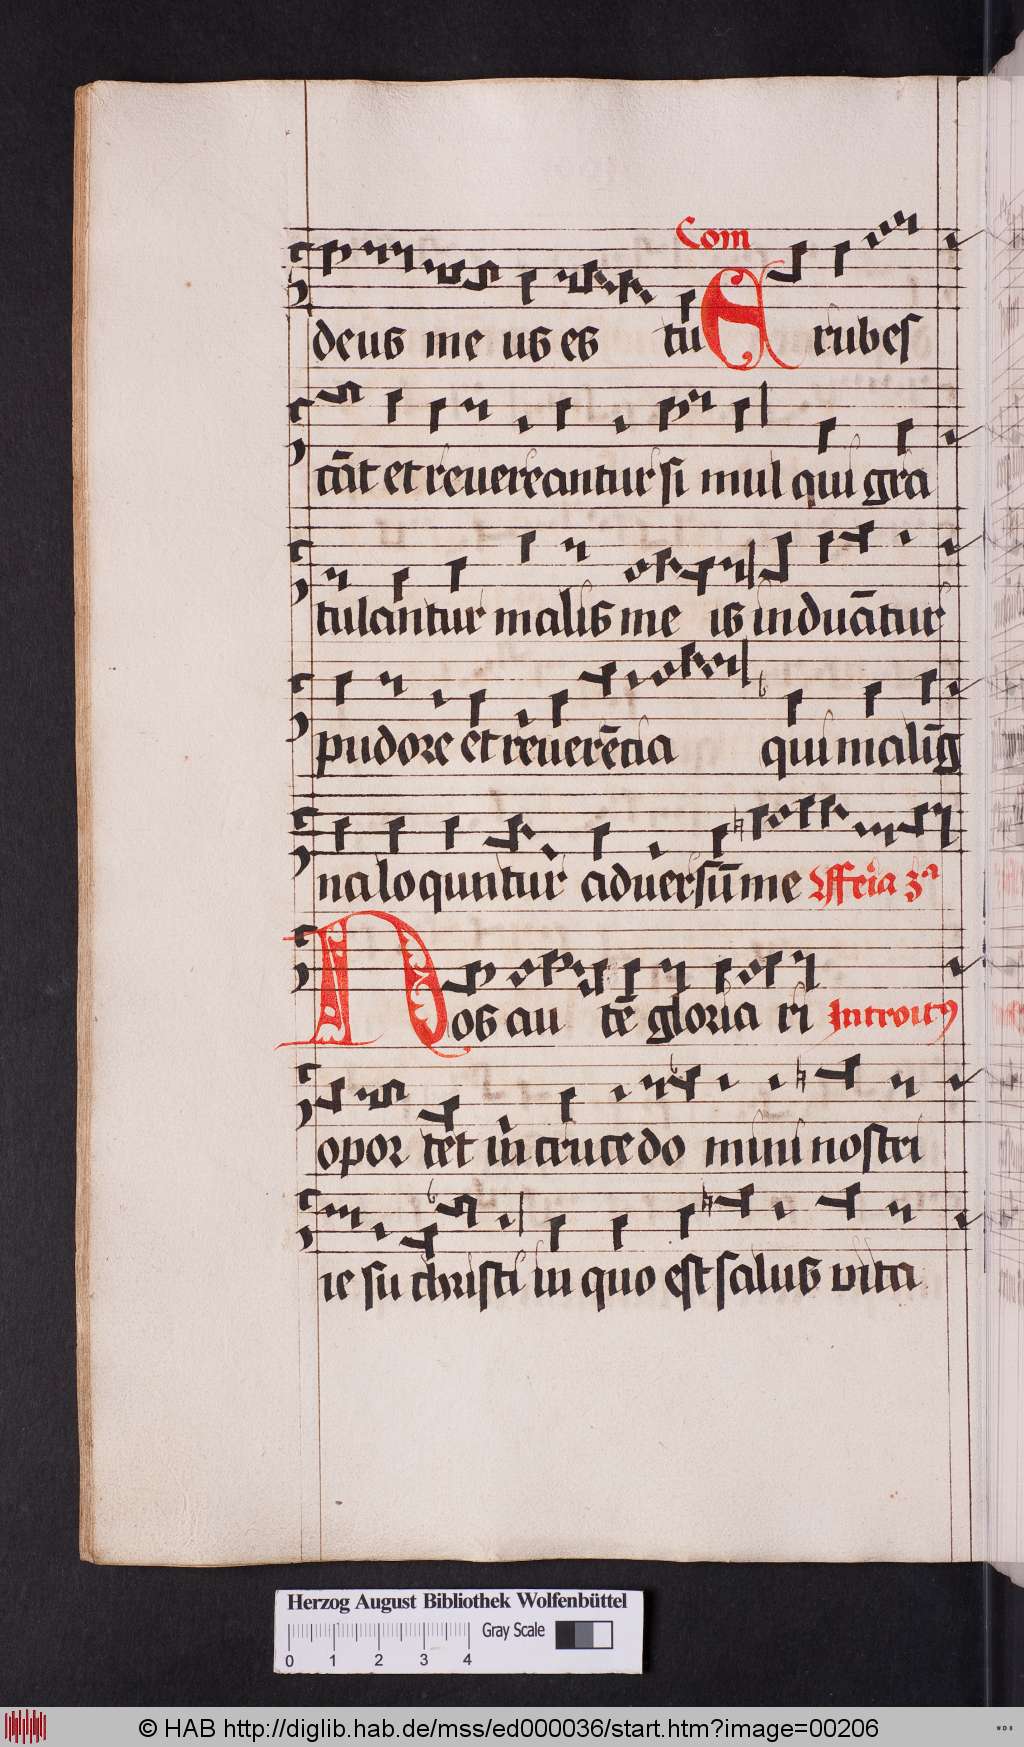 Com
deus me us es tu Erubes
cāt et reuereantur si mul qui gra
tulantur malis me is induātur
pudore et reuerētia qui malīg
na loquntur aduersū me
Nos au tē gloria ri Introitus
opor tet in cruce do mini nostri
ie su christi in quo est salus vita
Herzog August Bibliothek Wolfenbüttel
Gray Scale
0 1 2 3 4
© HAB http://diglib.hab.de/mss/ed000036/start.htm?image=00206